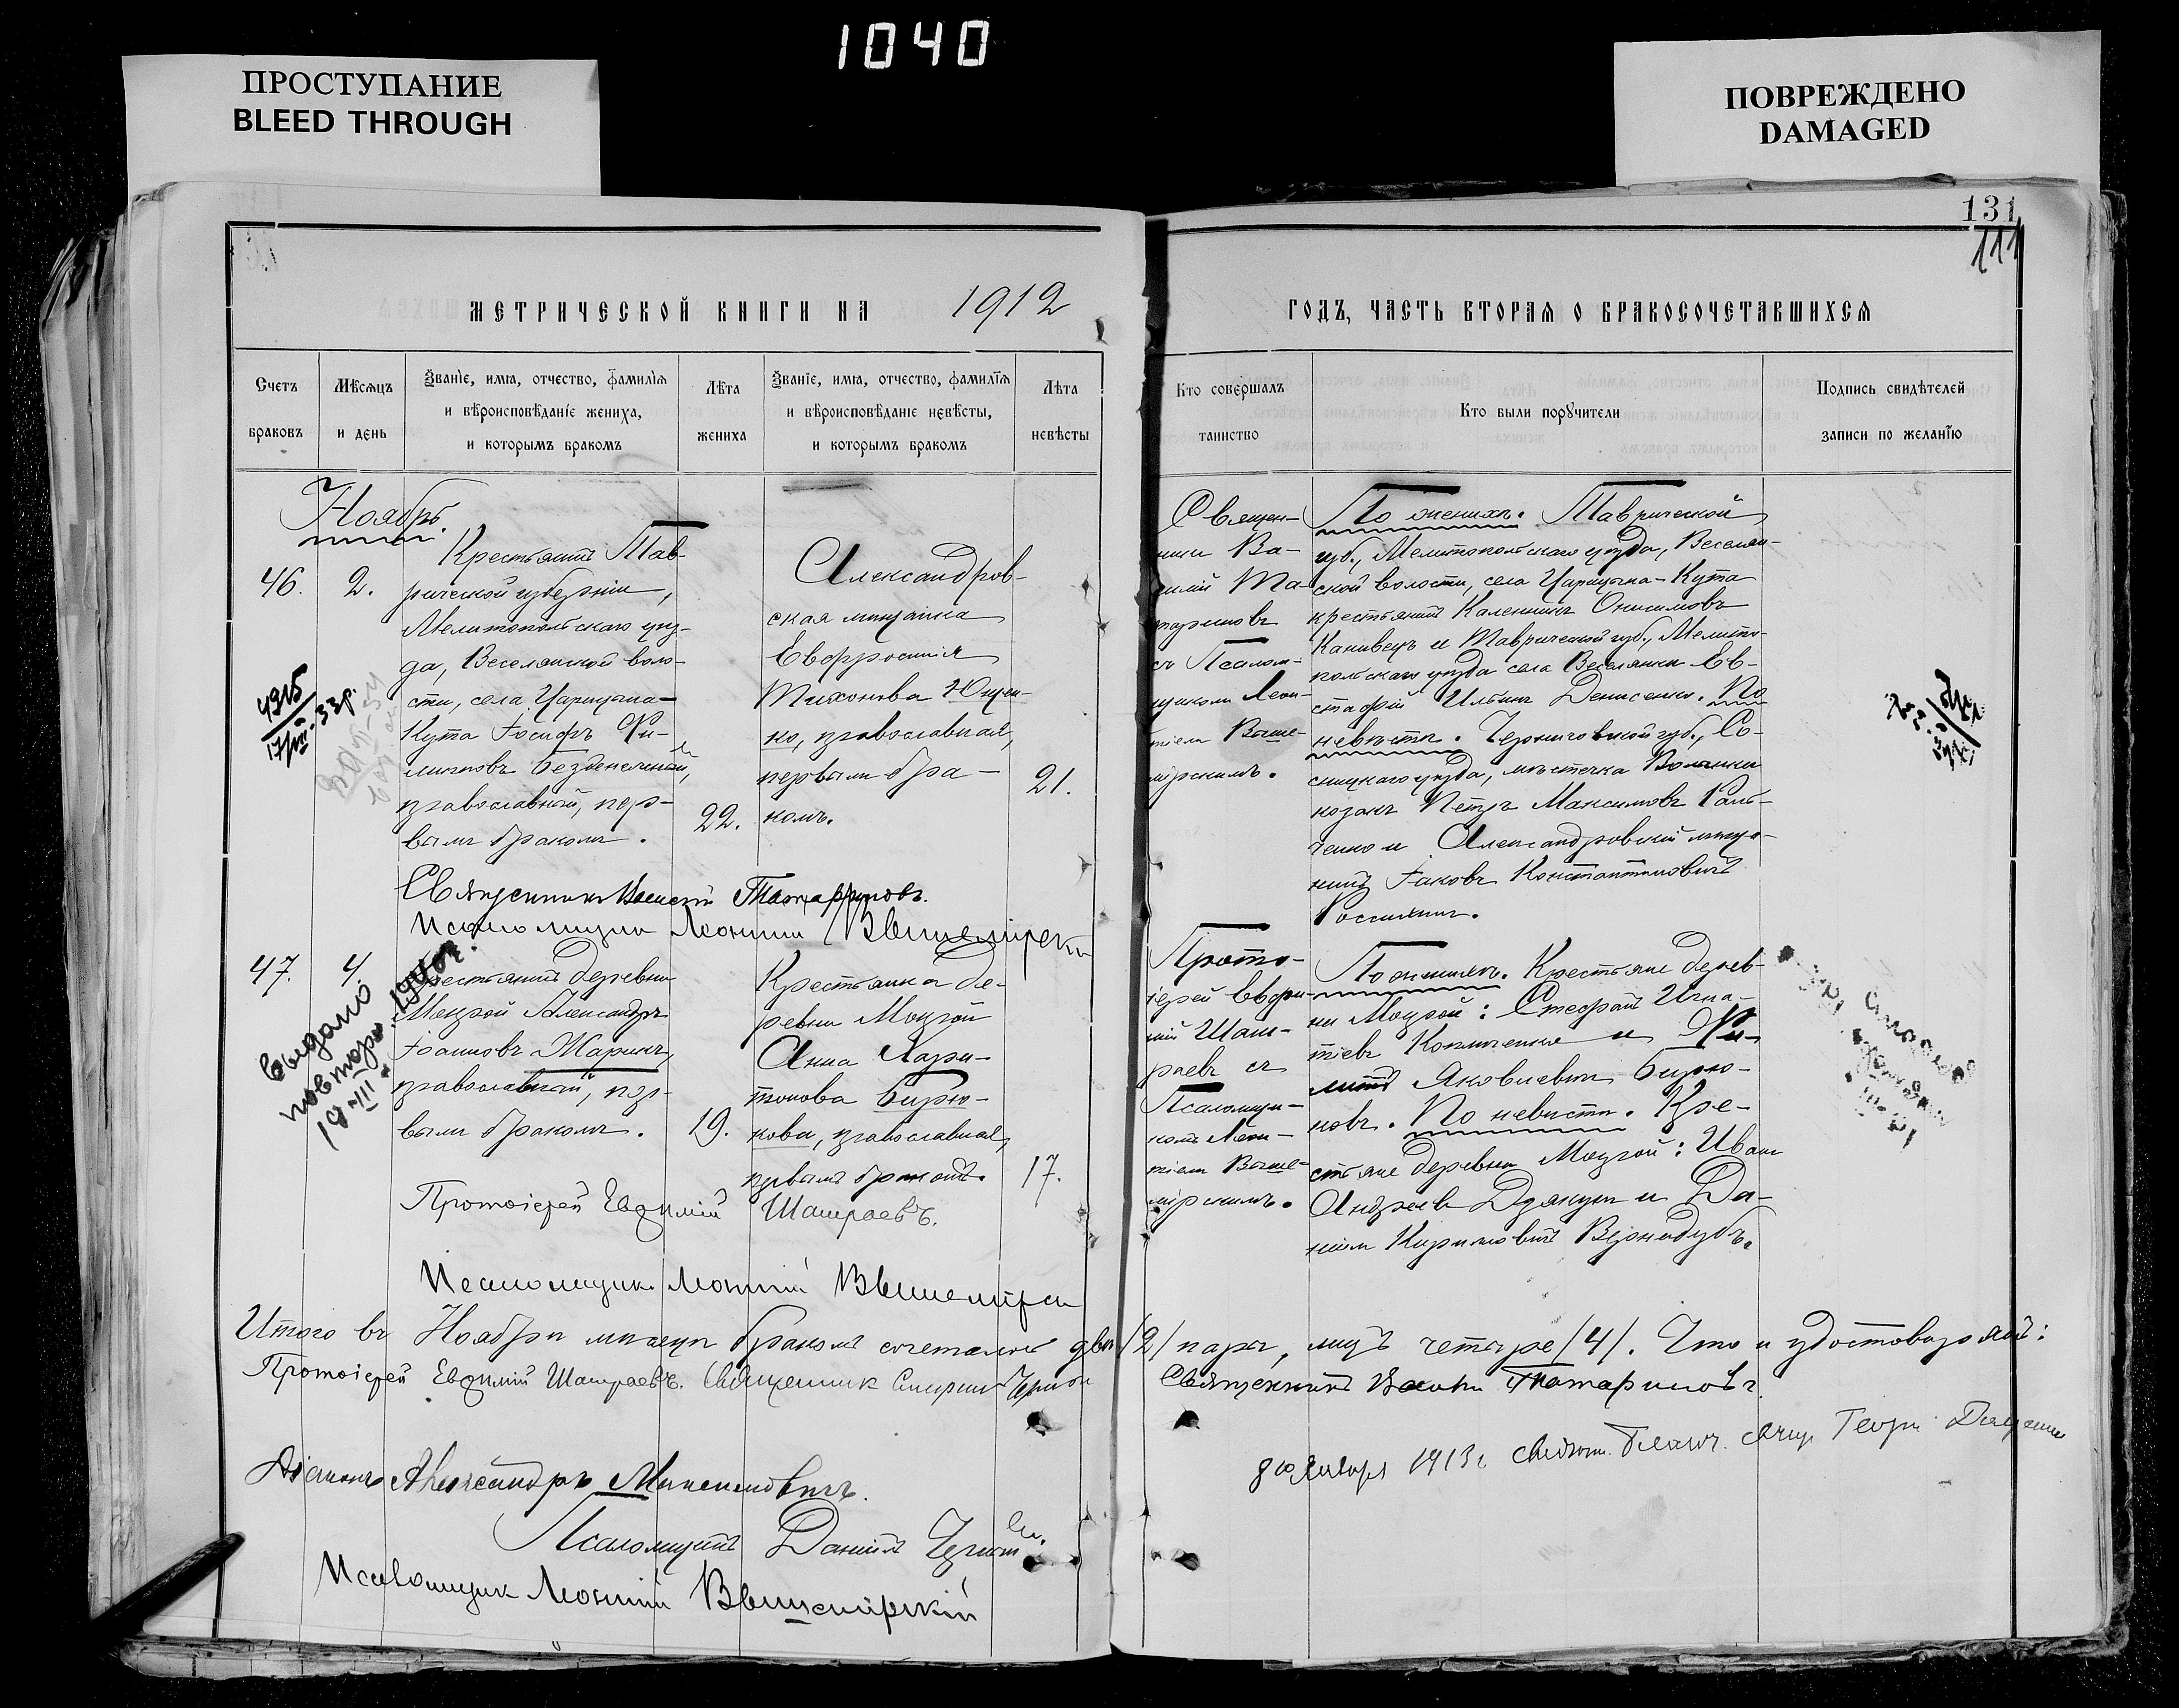 1040
ПРОСТУПАНИЕ
BLEED THROUGH
ПОВРЕЖДЕНО
DAMAGED
131
111
МЕТРИЧЕСКОЙ КНИГИ НА 1912
ГОДЪ, ЧАСТЬ ВТОРАЯ О БРАКОСОЧЕТАВШИХСЯ
Счетъ
браковъ
Мѣсяцъ
и день
Званіе, имя, отчество, фамилія
и вѣроисповѣданіе жениха,
и которымъ бракомъ
Лѣта
жениха
Званіе, имя, отчество, фамилія
и вѣроисповѣданіе невѣсты,
и которымъ бракомъ
Лѣта
невѣсты
Кто совершалъ
таинство
Кто были поручители
Подпись свидѣтелей
записи по желанію
Ноябрь.
46.
2.
Крестьянинъ Тав-
рической губерніи,
Мелитопольскаго уѣз-
да, Веселянской воло-
сти, села Царицына-
Кута Іосифъ Фи-
липповъ
православный, пер-
вымъ бракомъ.
22.
Александров-
ская мѣщанка
Евфросинія
Тихонова Ющен-
ко, православная,
первымъ бра-
комъ.
21.
Священ-
никъ Ва-
силій Та-
тариновъ
съ Псалом-
щикомъ Леон-
тіемъ Выше-
мірскимъ.
По женихѣ. Таврической
губ., Мелитопольскаго уѣзда, Веселян-
ской волости, села Царицына-Кута
крестьянинъ Каленникъ Онисимовъ
Канивецъ и Таврической губ., Мелито-
польскаго уѣзда села Веселянки Ев-
стафій Ильинъ Денисенко. По
невѣстѣ. Черниговской губ., Со-
сницкаго уѣзда, мѣстечка Волынки
козакъ Петръ Максимовъ Галь-
ченко и Александровскій мѣща-
нинъ Іаковъ Константиновичъ
4915
17/VII-33р.
Священникъ Василій Татариновъ.
Псаломщикъ Леонтій Вышемірскій
47.
4.
Крестьянинъ деревни
Мокрой Александръ
Іоанновъ Жаринъ,
православный, пер-
вымъ бракомъ.
19.
Крестьянка де-
ревни Мокрой
Анна Хари-
тонова Бирю-
кова, православная,
первымъ бракомъ.
17.
Прото-
іерей Евфи-
мій Шаш-
раевъ съ
Псаломщи-
комъ Леон-
тіемъ Выше-
мірскимъ.
По женихѣ. Крестьяне дерев-
ни Мокрой: Стефанъ Игна-
тіевъ и Фи-
липпъ Яковлевичъ Бирю-
ковъ. По невѣстѣ. Кре-
стьяне деревни Мокрой: Иванъ
Андреевъ и Да-
ніилъ Кирилловичъ Вернодубъ.
Выдано
повторно
Протоіерей Евфимій Шашраевъ.
Псаломщикъ Леонтій Вышемірскій
Итого въ Ноябрѣ мѣсяцѣ бракомъ сочеталось двѣ /2/ пары, лицъ четыре /4/. Что и удостовѣряемъ:
Протоіерей Евфимій Шашраевъ. Священникъ Священникъ Василій Татариновъ.
8го Января 1913 г.
Діаконъ Александръ
Псаломщикъ Даніилъ
Псаломщикъ Леонтій Вышемірскій